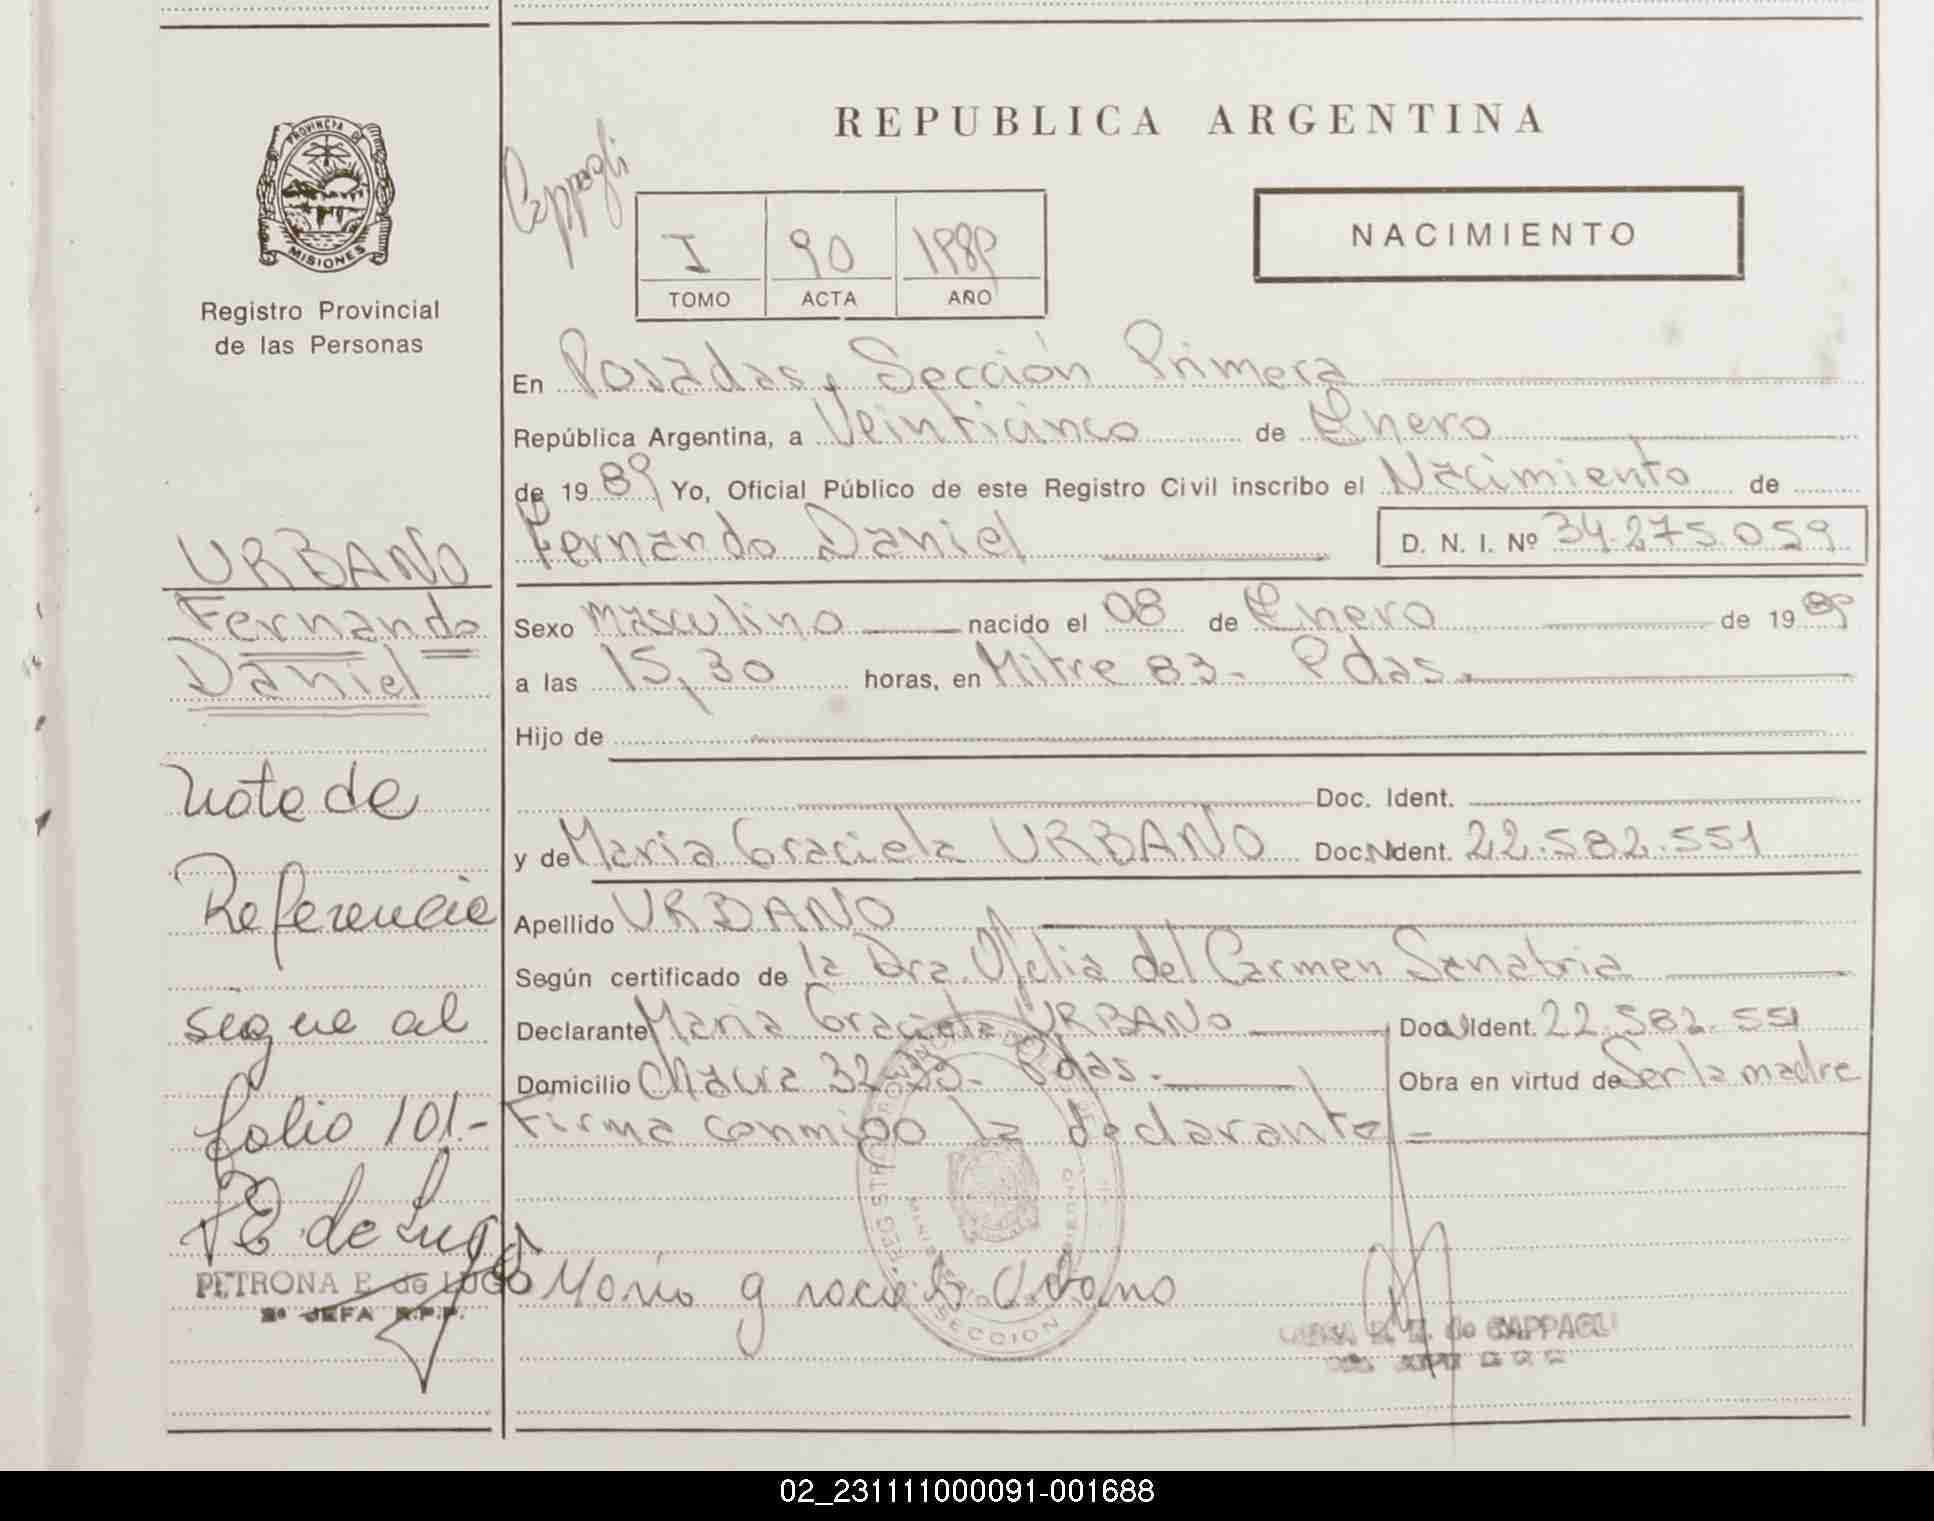 REPUBLICA ARGENTINA
PROVINCIA DE
MISIONES
Registro Provincial
de las Personas
Cappagli
I 90 1989
TOMO ACTA AÑO
NACIMIENTO
En Posadas, Sección Primera
República Argentina, a Veinticinco de Enero
de 19 89 Yo, Oficial Público de este Registro Civil inscribo el Nacimiento de
Fernando Daniel
D. N. I. Nº 34.275.059
Sexo Masculino nacido el 08 de Enero de 19 89
a las 15,30 horas, en Mitre 83- Pdas.
Hijo de
Doc. Ident.
y de Maria Graciela URBANO Doc. N Ident. 22.582.551
Apellido URBANO
Según certificado de la Dra. Ofelia del Carmen Sanabria
Declarante Maria Graciela URBANO Doc. N Ident. 22.582.551
Domicilio Chacra 32-33- Pdas. Obra en virtud de Ser la madre
Firma conmigo la declarante-
María graciela Urbano
SECCION
de CAPPAGLI
URBANO
Fernando
Daniel
Nota de
Referencia
sigue al
folio 101.-
P E. de Lugo
PETRONA E. de LUGO
2º JEFA R.P.P.
02_231111000091-001688